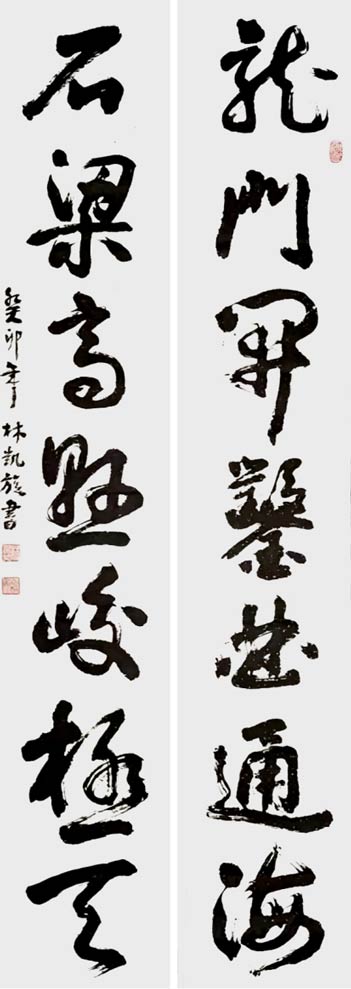 龍門開鑿通海
石梁高懸峻極天
癸卯年林凱旋書